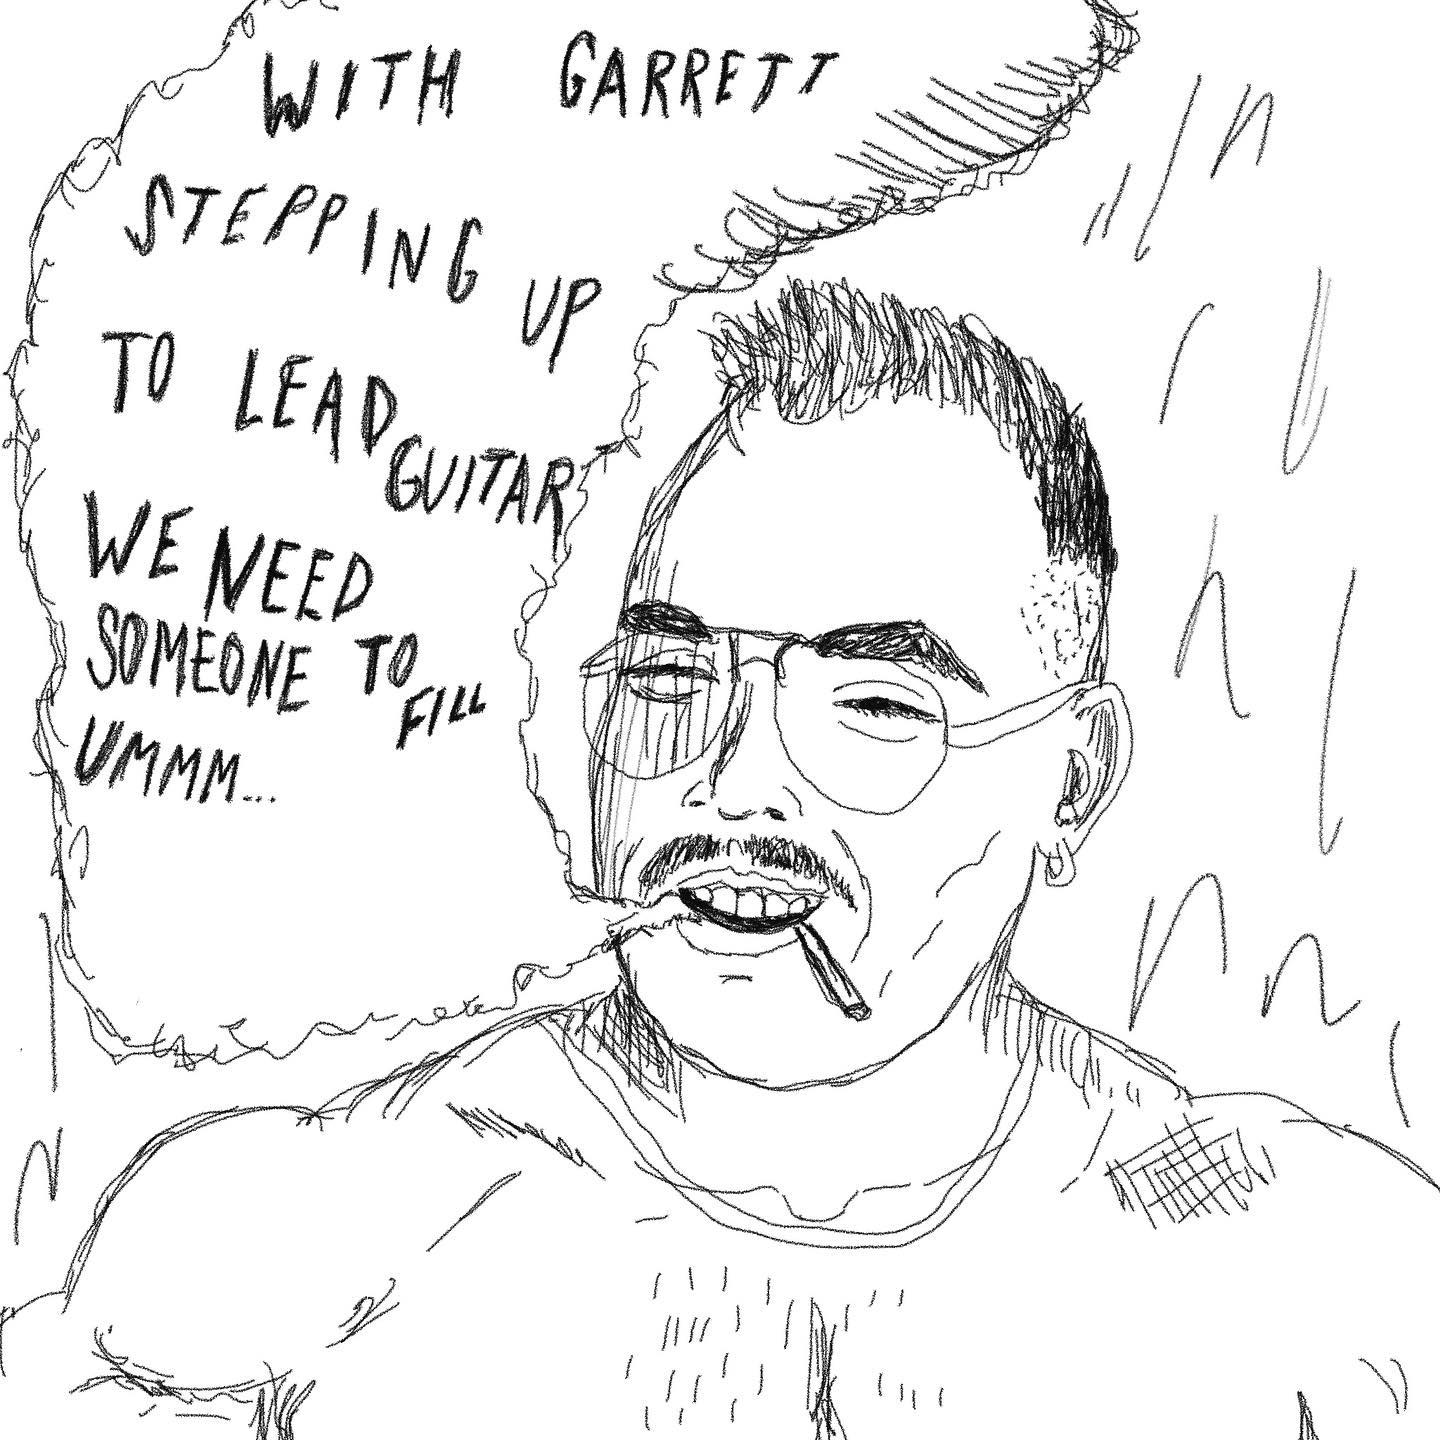 WITH GARRETT
STEPPING UP
TO LEAD
GUITAR
WE NEED
SOMEONE TO
FILL
UMMM...